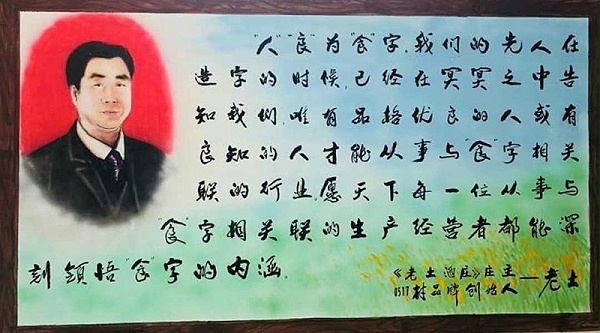 “人”“良”为“食”字,我们的先人在
造字的时候,已经在冥冥之中告
知我们,唯有品格优良的人或有
良知的人才能从事与“食”字相关
联的行业,愿天下每一位从事与
“食”字相关联的生产经营者都能深
刻领悟“食”字的内涵.
《老土酒庄》庄主
0517村品牌创始人—老土